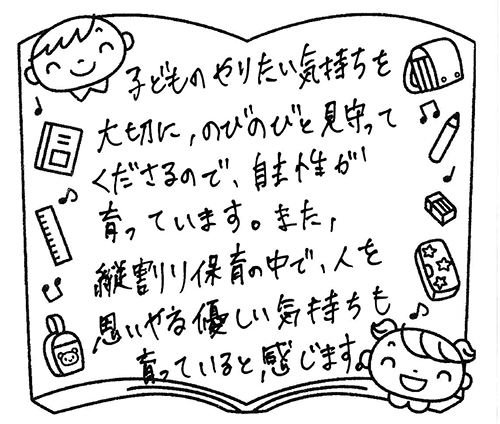 子どものやりたい気持ちを
大切に,のびのびと見守って
くださるので、自主性が
育っています。また,
縦割り保育の中で、人を
思いやる優しい気持ちも
育っていると感じます。